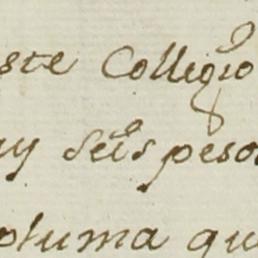 ste Collegio
y seis pesos
oluma qu